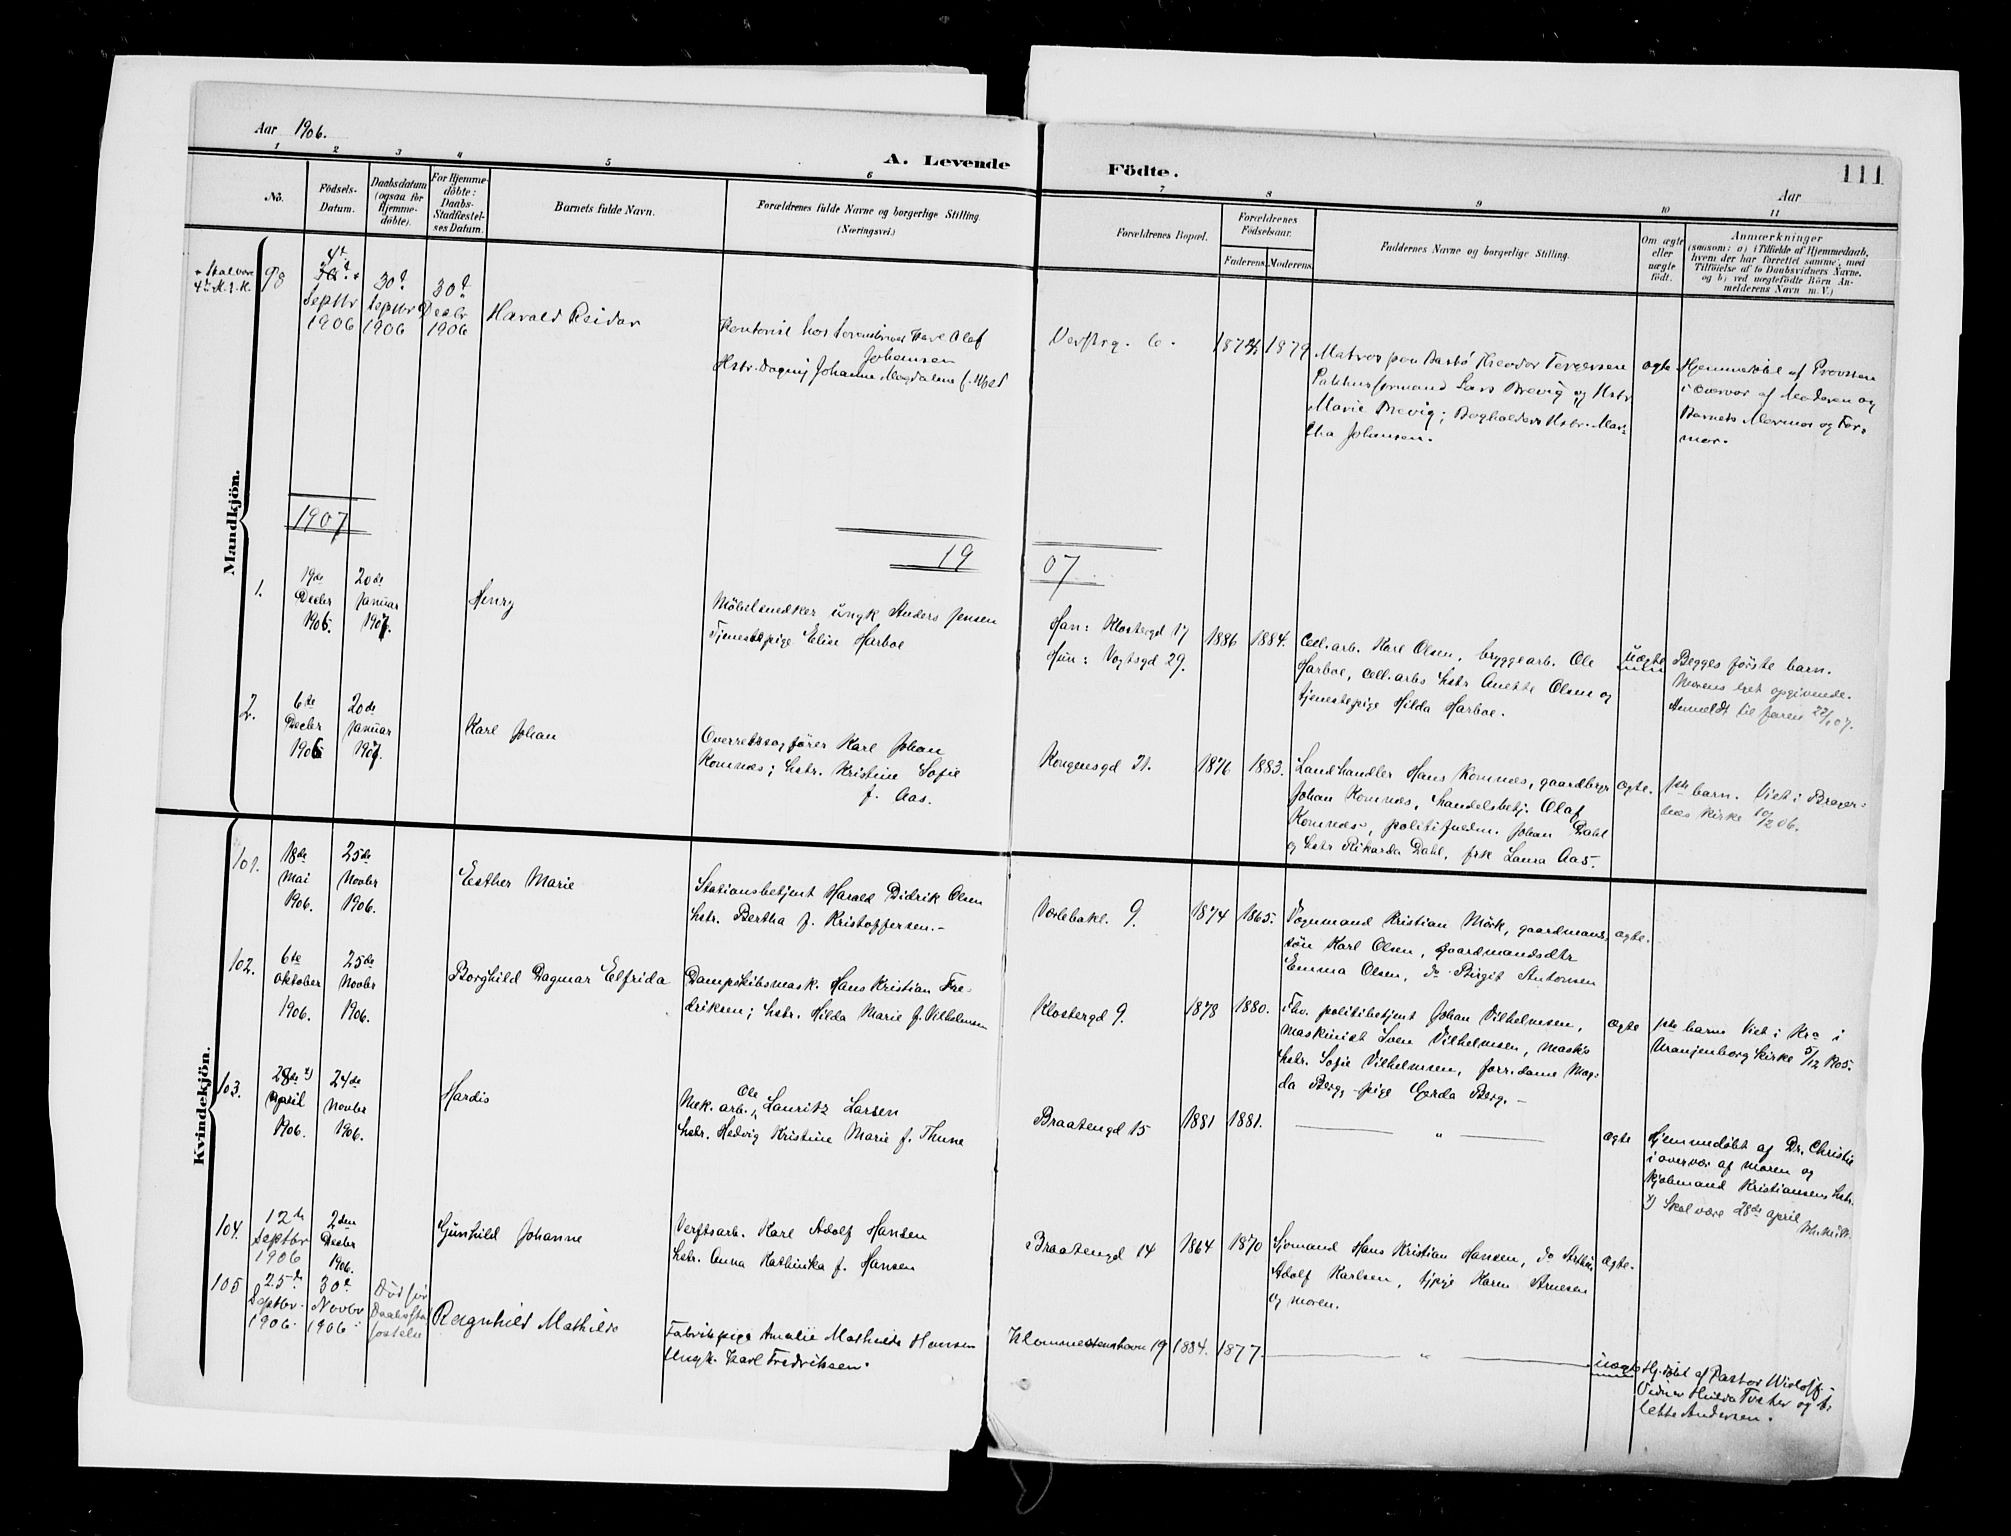 Aar 1906.
A. Levende Födte.
111
Aar
1 2 3 4 5 6 7 8 9 10 11
No.
Födsels-
Datum.
Daabsdatum
(ogsaa for
Hjemme-
döbte).
For Hjemme-
döbte:
Daabs-
Stadfæstel-
ses Datum.
Barnets fulde Navn.
Forældrenes fulde Navne og borgerlige Stilling.
(Næringsvei.)
Forældrenes Bopæl.
Forældrenes
Födselsaar.
Faderens. Moderens.
Faddernes Navne og borgerlige Stilling.
Om ægte
eller
uægte
født.
Anmærkninger
(saasom: a) i Tilfælde af Hjemmedaab,
hvem der har forrettet samme, med
Tilföielse af to Daabsvidners Navne,
og b) ved uægtefödte Börn An-
melderens Navn m. V.)
Mandkjön.
98
4de
Septbr
1906
30d
Septbr
1906
30d
Decbr
1906
Harald Reidar
Kontorist hos Karl Olaf
Johansen
Hstr. Dagny Johanne Magdalene f.
Verftsg. 6.
1879
Matros paa Theodor Tergersen
Pakhusformand Lars Brevig og Hstr
Marie Brevig; Bogholders Hstr. Mar-
tha Johansen.
ægte
Hjemmedöbt af Provsten
i Overvær af Moderen og
Barnets Mormor og Far-
mor.
1907
19 07
1.
19de
Decbr
1906.
20de
Januar
1907.
Henry
Möbelsnedker ungk Anders Jensen
Tjenestepige Elise Harboe
Han: Klostergd 17
Hun: Vogtsgd 29.
1886 1884.
Cell.arb. Karl Olsen, bryggearb. Ole
Harboe, cell.arbs hstr Anette Olsen og
tjenestepige Hilda Harboe.
uægte
Begges förste barn.
Morens eget opgivende.
Anmeldt til faren 22/1 07.
2.
6te
Decbr
1906
20de
Januar
1907.
Karl Johan
Overretssagförer Karl Johan
Komnæs; hstr. Kristine Sofie
f. Aas.
Kongensgd 21.
1876 1883.
Landhandler Hans Komnæs, gaardbrgr
Johan Komnæs, handelsbetj. Olaf
Komnæs, politifuldm. Johan Dahl
og hstr Rikarda Dahl, frk Laura Aas.
ægte.
1ste barn. Viet i Brager-
næs kirke 10/2 06.
Kvindekjön.
101.
18de
Mai
1906.
25de
Novbr
1906.
Esther Marie
Stationsbetjent Harald Didrik Olsen
hstr. Bertha f. Kristoffersen.-
Værlebakk. 9.
1874 1865.
Vognmand Kristian Mörk, gaardmand-
sön Karl Olsen, gaardmandsdtr
Emma Olsen, do Birgit Antonsen
ægte.
102.
6te
Oktober
1906.
25de
Novbr
1906.
Borghild Dagmar Elfrida
Dampskibsmask. Hans Kristian Fre-
driksen; hstr. Hilda Marie f. Vilhelmsen
Klostergd 9.
1878 1880.
Fhv. politibetjent Johan Vilhelmsen,
maskinist Sven Vilhelmsen, mask's
hstr. Sofie Vilhelmsen, forr.dame Mag-
da Berg, pige Gerda Berg. -
ægte
1ste barn Viet i Kra i
Uranienborg kirke 5/12 1905.
103.
28de x)
April
1906.
24de
Novbr
1906.
Hardis
Mek. arb. Ole Lauritz Larsen
hstr. Hedvig Kristine Marie f. Thune
Braatengd 15
1881 1881.
"
ægte
Hjemmedöbt af Dr. Christie
i overvær af moren og
kjöbmand Kristiansens hstr.
x) Skal være 28de april
104.
12te
Septbr
1906
2den
Decbr
1906.
Gunhild Johanne
Verftsarb. Karl Adolf Hansen
hstr. Anna Kathinka f. Hansen
Braatengd 14
1864 1870
Sjömand Hans Kristian Hansen, do
Adolf Karlsen, tjpige Karen Arnesen
og moren.
ægte.
105
25de
Septbr.
1906.
30d
Novbr
1906.
Död för
Ragnhild Mathilde
Fabrikpige Amalie Mathilde Hansen
Ungk. Karl Fredriksen.
19
1884. 1877.
"
uægte
Hj.döbt af Pastor Wisloff.
Vidner Hulda og
lette Andersen.